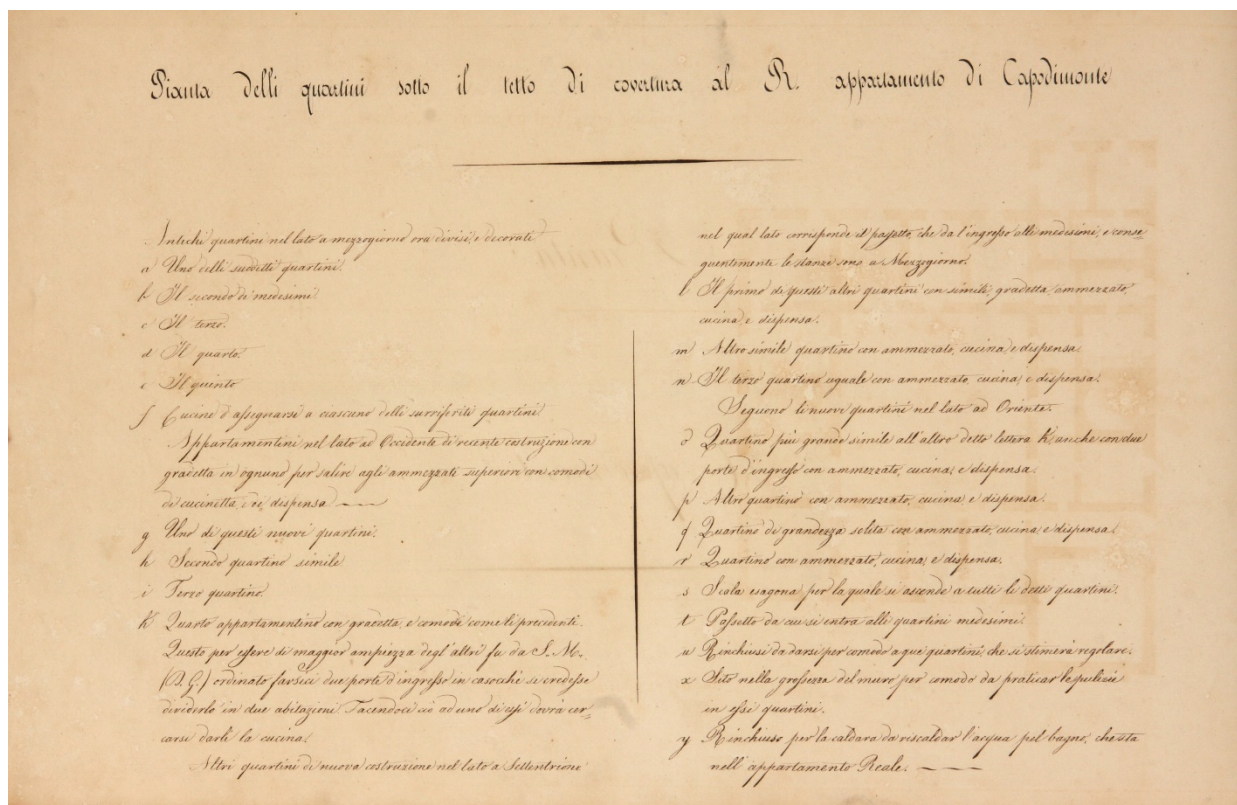 Pianta delli quartini sotto il tetto di covertura al R. appartamento di Capodimonte
Antichi quartini nel lato a mezzogiorno ora divisi, e decorati
a Uno delli suddetti quartini.
b Il secondo di medesimi.
c Il terzo.
d Il quarto.
e Il quinto
f Cucine d'assegnarsi a ciascuno delli surriferiti quartini
Appartamentini nel lato ad Occidente di recente costruzione con
gradetta in ognuno per salire agli ammezzati superiori con comodi
di cucinetta, e dispensa
g Uno di questi nuovi quartini.
h Secondo quartino simile
i Terzo quartino
K Quarto appartamentino con gradetta, e comodi come li precedenti.
Questo per essere di maggior ampiezza degl'altri fu da S. M.
(D. G.) ordinato farsici due porte d'ingresso in casochè si credesse
dividerlo in due abitazioni. Facendoci ciò ad uno di essi dovrà cer-
carsi darli la cucina.
Altri quartini di nuova costruzione nel lato a Settentrione
nel qual lato corrisponde il passetto, che da l'ingresso alli medesimi, e conse-
guentemente le stanze sono a Mezzogiorno.
l Il primo di questi altri quartini con simili, gradetta, ammezzato,
cucina, e dispensa.
m Altro simile quartino con ammezzato, cucina, e dispensa.
n Il terzo quartino uguale con ammezzato, cucina, e dispensa.
Seguono li nuovi quartini nel lato ad Oriente.
o Quartino più grande simile all'altro detto lettera K anche con due
porte d'ingresso con ammezzato, cucina, e dispensa.
p Altro quartino con ammezzato, cucina, e dispensa.
q Quartino di grandezza solita con ammezzato, cucina, e dispensa.
r Quartino con ammezzato, cucina, e dispensa.
s Scala esagona per la quale si ascende a tutti li detti quartini.
t Passetto da cui si entra alli quartini medesimi.
u Rinchiusi da darsi per comodo a que' quartini, che si stimerà regolare.
x Sito nella grossezza del muro per comodo da praticar le pulizie
in essi quartini.
y Rinchiuso per la caldara da riscaldar l'acqua pel bagno, che sta
nell'appartamento Reale.